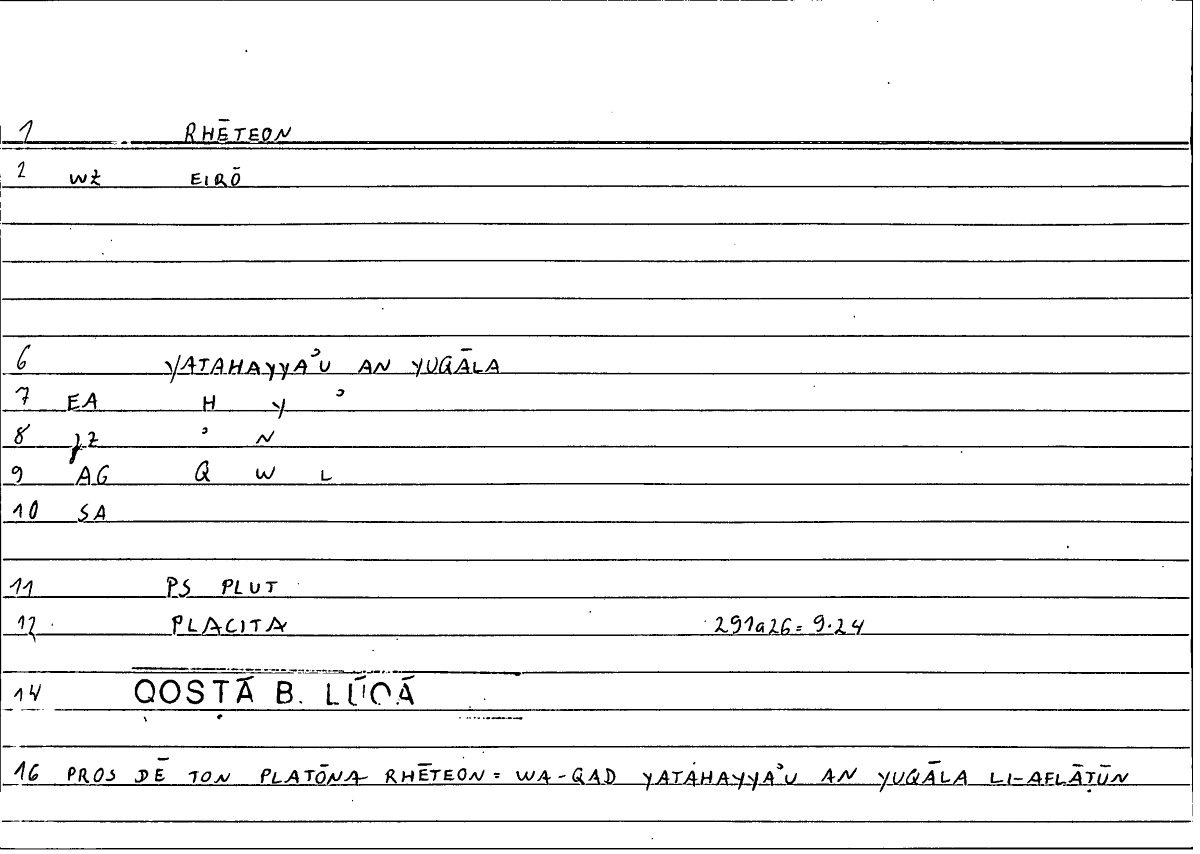 1 RHĒTEON
2 WŻ EIRŌ
6 YATAHAYYAʾU AN YUQĀLA
7 EA H Y ʾ
8 ʾ N
9 AG Q W L
10 SA
11 PS PLUT
12 PLACITA 291a26 = 9.24
14 QOSṬĀ B. LŪQĀ
16 PROS DĒ TON PLATŌNA RHĒTEON = WA-QAD YATAHAYYAʾU AN YUQĀLA LI-AFLĀṬŪN